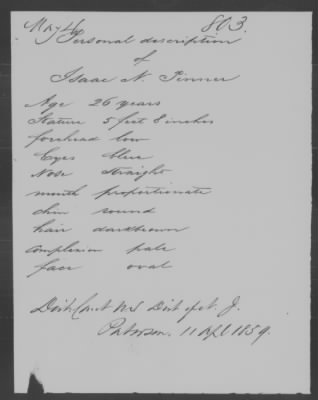 May 4 803.
Personal description
of
Isaac N. Pinner
Age 26 years
Stature 5 feet 8 inches
forehead low
Eyes blue
Nose straight
mouth proportionate
chin round
hair darkbrown
complexion pale
face oval
Dist Court US Dist of N. J.
Paterson, 11 Apl 1859.